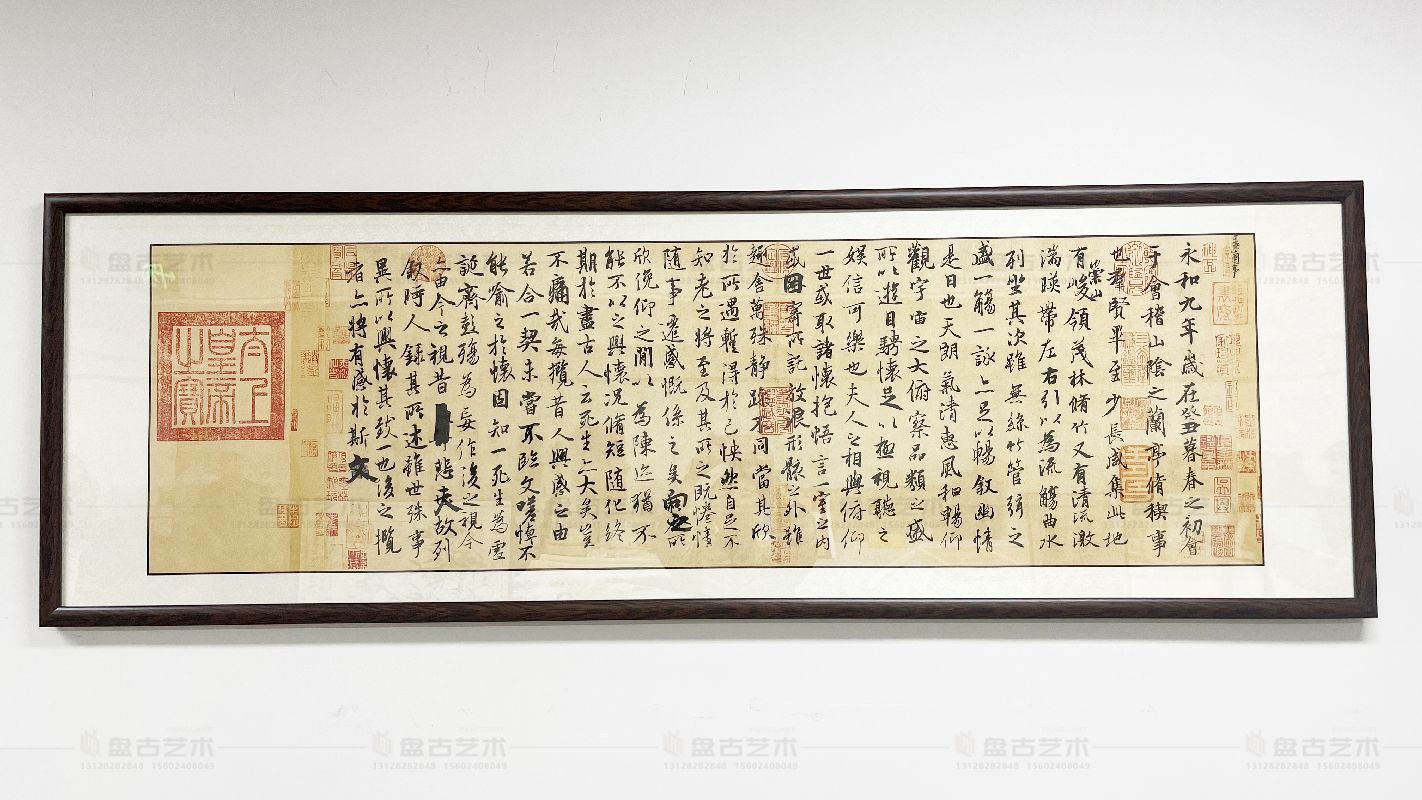 永和九年歲在癸丑暮春之初會
于會稽山陰之蘭亭脩稧事
也羣賢畢至少長咸集此地
有崇山峻領茂林脩竹又有清流激
湍暎帶左右引以為流觴曲水
列坐其次雖無絲竹管弦之
盛一觴一詠亦足以暢敘幽情
是日也天朗氣清惠風和暢仰
觀宇宙之大俯察品類之盛
所以遊目騁懷足以極視聽之
娛信可樂也夫人之相與俯仰
一世或取諸懷抱悟言一室之內
或因寄所託放浪形骸之外雖
趣舍萬殊靜躁不同當其欣
於所遇暫得於己怏然自足不
知老之將至及其所之既惓情
隨事遷感慨係之矣向之所
欣俛仰之閒以為陳迹猶不
能不以之興懷況脩短隨化終
期於盡古人云死生亦大矣豈
不痛哉每攬昔人興感之由
若合一契未嘗不臨文嗟悼不
能喻之於懷固知一死生為虛
誕齊彭殤為妄作後之視今
亦由今之視昔悲夫故列
敘時人錄其所述雖世殊事
異所以興懷其致一也後之攬
者亦將有感於斯文
太上
皇帝
之寶
盘古艺术
13128282848 15602408049